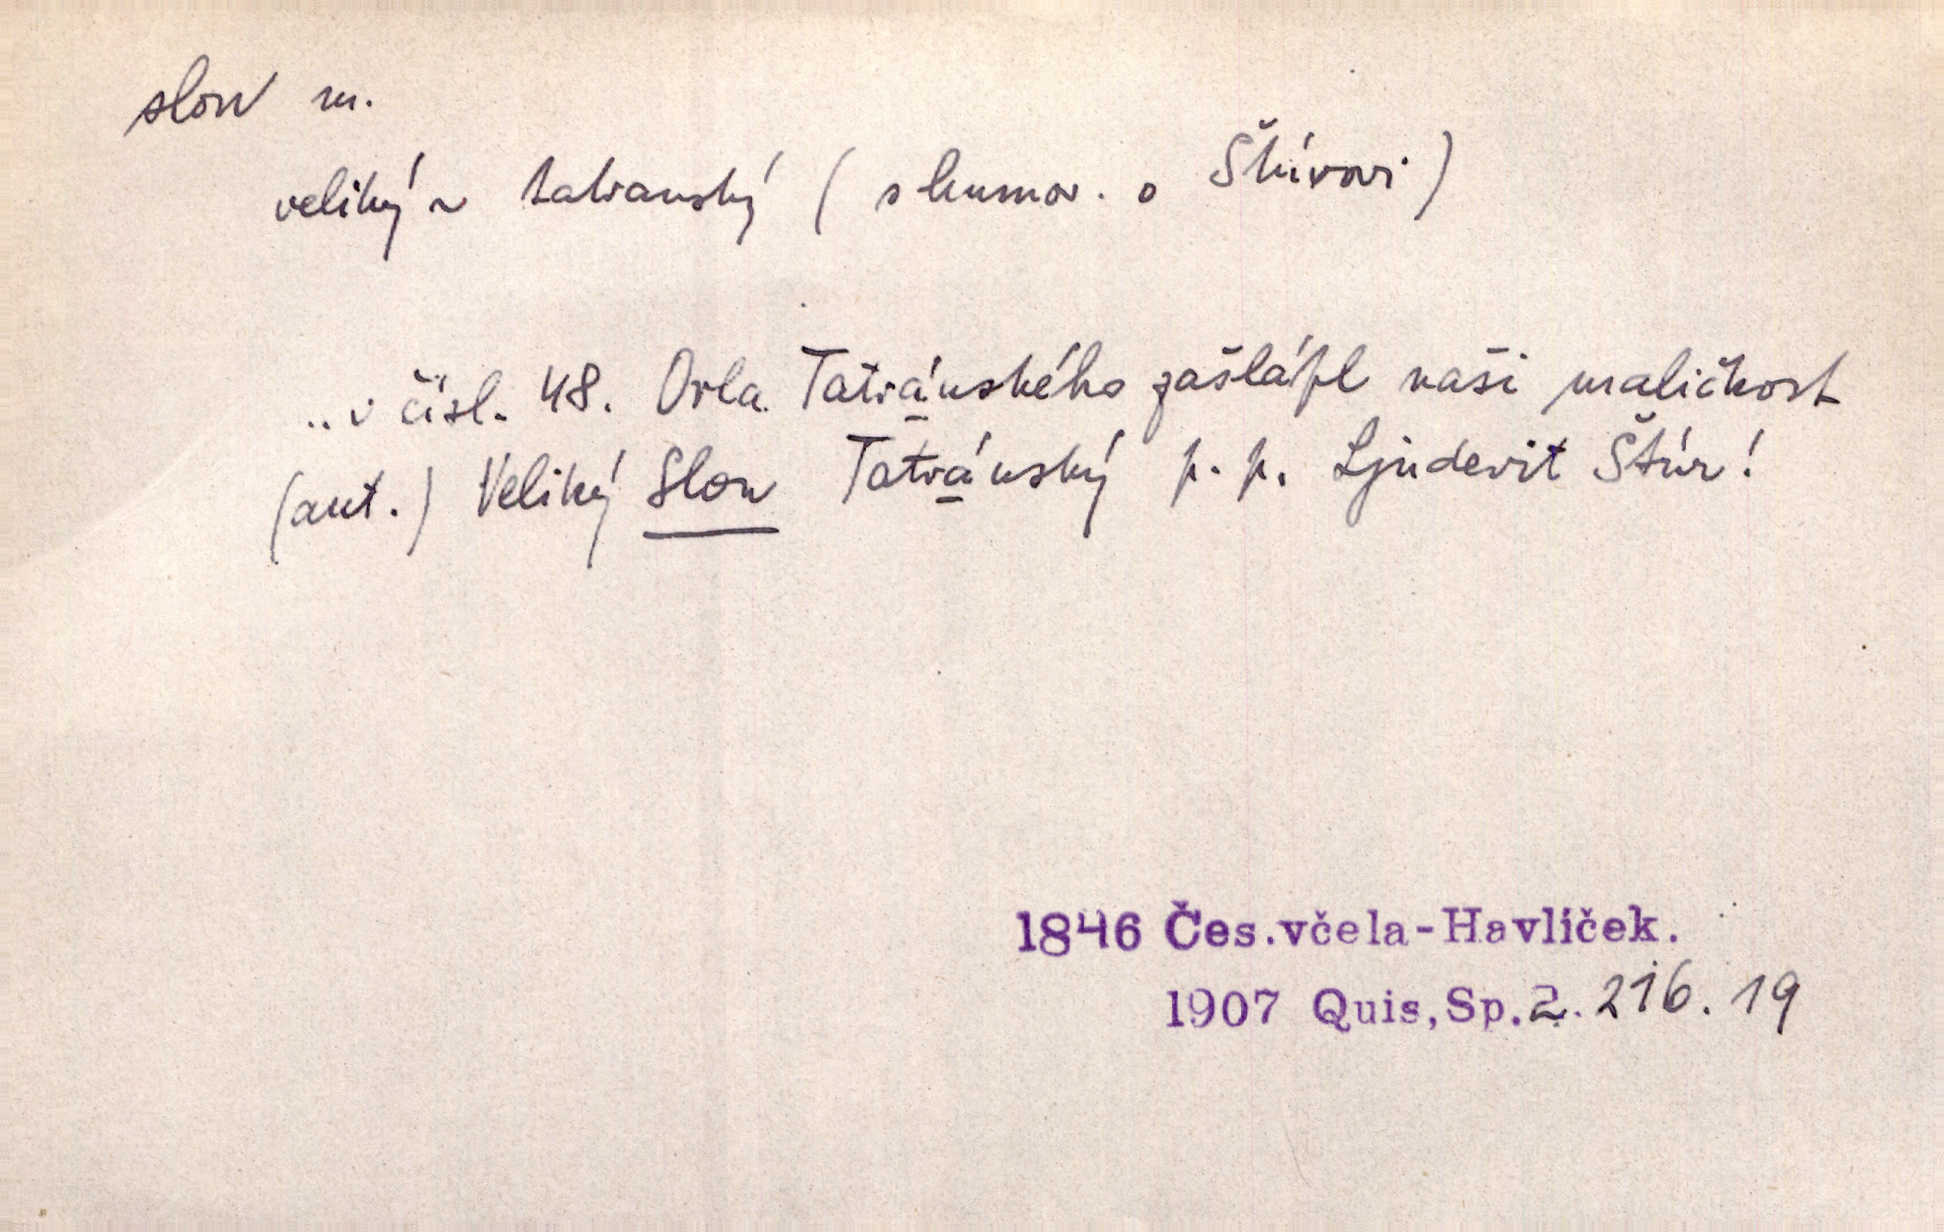 slon m.
veliký ~ tatranský (s humor. o Štúrovi)
..v čísl. 48. Orla Tatránského zašlápl naši maličkost
(aut.) Veliký Slon Tatránský p. p. Ljudevit Štúr!
1846 Čes.včela-Havlíček.
1907 Quis,Sp.2. 216. 19